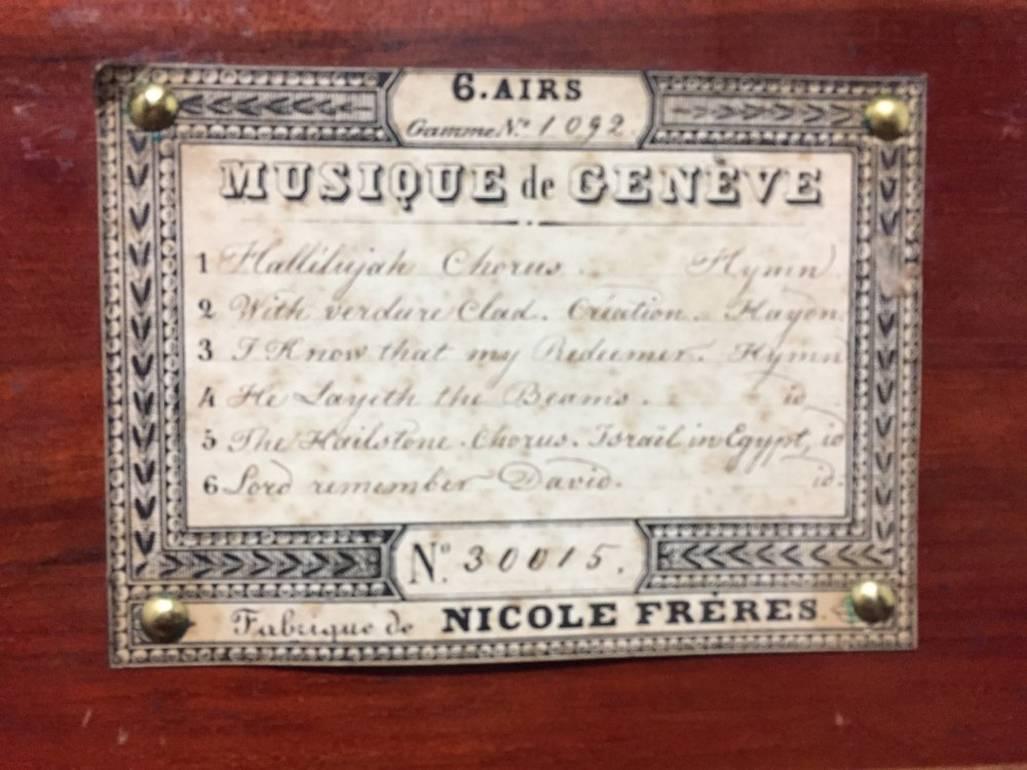 6. AIRS
Gamme N.º 1092
MUSIQUE de GENÈVE
1 Hallilujah Chorus. Hymn
2 With verdure Clad. Création. Haydn
3 I Know that my Redeemer. Hymn
4 He Layeth the Beams. id.
5 The Hailstone Chorus. Israël in Egypt, id
6 Lord remember David. id.
N.º 30015.
Fabrique de NICOLE FRÈRES